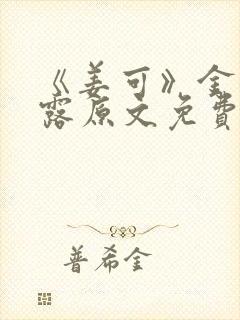 《姜可》金
露原文免费
普希金